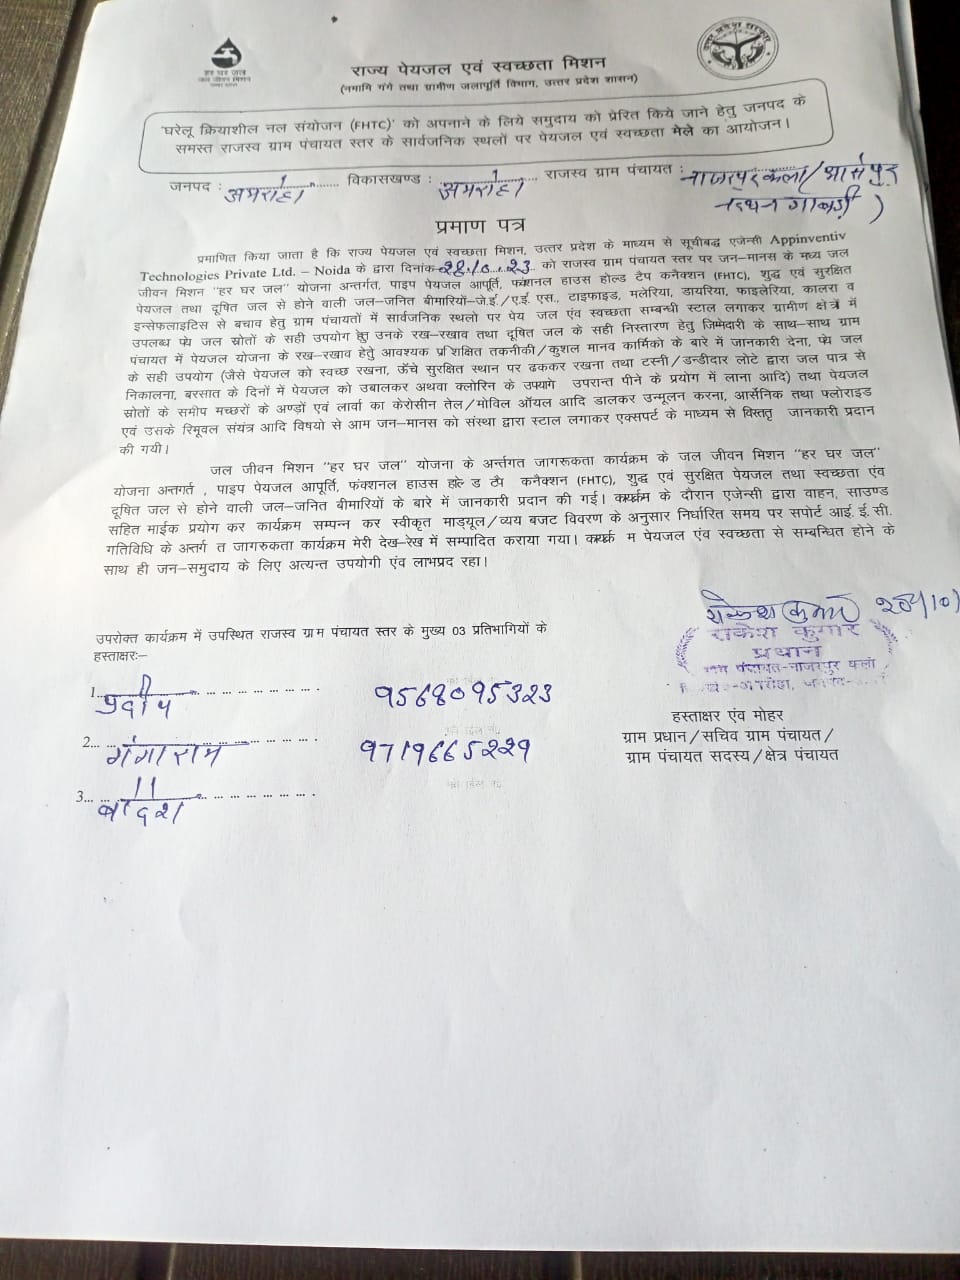 हर घर जल
जल जीवन मिशन
उत्तर प्रदेश सरकार
राज्य पेयजल एवं स्वच्छता मिशन
(नमामि गंगे तथा ग्रामीण जलापूर्ति विभाग, उत्तर प्रदेश शासन)
'घरेलू क्रियाशील नल संयोजन (FHTC)' को अपनाने के लिये समुदाय को प्रेरित किये जाने हेतु जनपद के
समस्त राजस्व ग्राम पंचायत स्तर के सार्वजनिक स्थलों पर पेयजल एवं स्वच्छता मेले का आयोजन।
जनपद : अमरोहा विकासखण्ड : अमरोहा राजस्व ग्राम पंचायत : नाजरपुर कलां /
प्रमाण पत्र
प्रमाणित किया जाता है कि राज्य पेयजल एवं स्वच्छता मिशन, उत्तर प्रदेश के माध्यम से सूचीबद्ध एजेन्सी Appinventiv
Technologies Private Ltd. – Noida के द्वारा दिनांक 28.10.23 को राजस्व ग्राम पंचायत स्तर पर जन-मानस के मध्य जल
जीवन मिशन "हर घर जल" योजना अन्तर्गत, पाइप पेयजल आपूर्ति, फंक्शनल हाउस होल्ड टैप कनैक्शन (FHTC), शुद्ध एवं सुरक्षित
पेयजल तथा दूषित जल से होने वाली जल-जनित बीमारियों-जे.ई./ए.ई. एस., टाइफाइड, मलेरिया, डायरिया, फाइलेरिया, कालरा व
इन्सेफलाइटिस से बचाव हेतु ग्राम पंचायतों में सार्वजनिक स्थलो पर पेय जल एंव स्वच्छता सम्बन्धी स्टाल लगाकर ग्रामीण क्षेत्रों में
उपलब्ध पेय जल स्रोतों के सही उपयोग हेतु उनके रख-रखाव तथा दूषित जल के सही निस्तारण हेतु जिम्मेदारी के साथ-साथ ग्राम
पंचायत में पेयजल योजना के रख-रखाव हेतु आवश्यक प्रशिक्षित तकनीकी/कुशल मानव कार्मिको के बारे में जानकारी देना, पेय जल
के सही उपयोग (जैसे पेयजल को स्वच्छ रखना, ऊँचे सुरक्षित स्थान पर ढककर रखना तथा टस्नी/डन्डीदार लोटे द्वारा जल पात्र से
निकालना, बरसात के दिनों में पेयजल को उबालकर अथवा क्लोरिन के उपयोग उपरान्त पीने के प्रयोग में लाना आदि) तथा पेयजल
स्रोतों के समीप मच्छरों के अण्डों एवं लार्वा का केरोसीन तेल/मोविल ऑयल आदि डालकर उन्मूलन करना, आर्सेनिक तथा फ्लोराइड
एवं उसके रिमूवल संयंत्र आदि विषयो से आम जन-मानस को संस्था द्वारा स्टाल लगाकर एक्सपर्ट के माध्यम से विस्तृत जानकारी प्रदान
की गयी।
जल जीवन मिशन "हर घर जल" योजना के अर्न्तगत जागरूकता कार्यक्रम के जल जीवन मिशन "हर घर जल"
योजना अन्तगर्त , पाइप पेयजल आपूर्ति, फंक्शनल हाउस होल्ड टैप कनैक्शन (FHTC), शुद्ध एवं सुरक्षित पेयजल तथा स्वच्छता एंव
दूषित जल से होने वाली जल-जनित बीमारियों के बारे में जानकारी प्रदान की गई। कार्यक्रम के दौरान एजेन्सी द्वारा वाहन, साउण्ड
सहित माईक प्रयोग कर कार्यक्रम सम्पन्न कर स्वीकृत माड्यूल/व्यय बजट विवरण के अनुसार निर्धारित समय पर सपोर्ट आई. ई. सी.
गतिविधि के अर्न्तगत जागरुकता कार्यक्रम मेरी देख-रेख में सम्पादित कराया गया। कार्यक्रम पेयजल एंव स्वच्छता से सम्बन्धित होने के
साथ ही जन-समुदाय के लिए अत्यन्त उपयोगी एंव लाभप्रद रहा।
राकेश कुमार
राकेश कुमार
प्रधान
ग्राम पंचायत-नाजरपुर कलां
उपरोक्त कार्यक्रम में उपस्थित राजस्व ग्राम पंचायत स्तर के मुख्य 03 प्रतिभागियों के
हस्ताक्षरः-
1... प्रदीप 9568095323
2... गंगाराम 9719665229
3...
हस्ताक्षर एंव मोहर
ग्राम प्रधान/सचिव ग्राम पंचायत/
ग्राम पंचायत सदस्य/क्षेत्र पंचायत